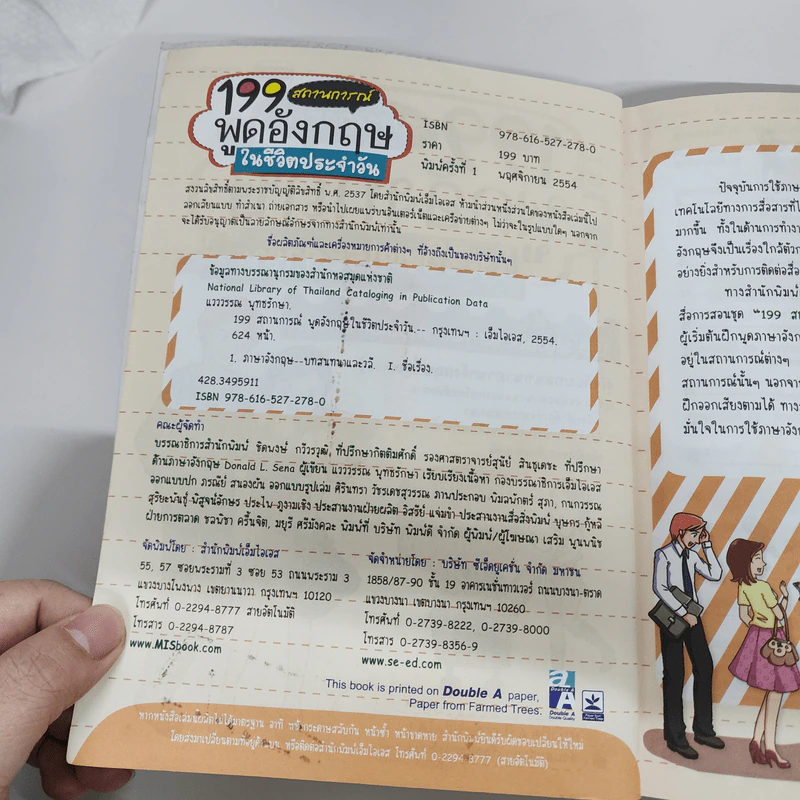 199 สถานการณ์
พูดอังกฤษ
ในชีวิตประจำวัน
ISBN 978-616-527-278-0
ราคา 199 บาท
พิมพ์ครั้งที่ 1 พฤศจิกายน 2554
สงวนลิขสิทธิ์ตามพระราชบัญญัติลิขสิทธิ์ พ.ศ. 2537 โดยสำนักพิมพ์เอ็มไอเอส ห้ามนำส่วนหนึ่งส่วนใดของหนังสือเล่มนี้ไป
ลอกเลียนแบบ ทำสำเนา ถ่ายเอกสาร หรือนำไปเผยแพร่บนอินเตอร์เน็ตและเครือข่ายต่างๆ ไม่ว่าจะในรูปแบบใดๆ นอกจาก
จะได้รับอนุญาตเป็นลายลักษณ์อักษรจากทางสำนักพิมพ์เท่านั้น
ชื่อผลิตภัณฑ์และเครื่องหมายการค้าต่างๆ ที่อ้างถึงเป็นของบริษัทนั้นๆ
ข้อมูลทางบรรณานุกรมของสำนักหอสมุดแห่งชาติ
National Library of Thailand Cataloging in Publication Data
แวววรรณ พุทธรักษา.
199 สถานการณ์ พูดอังกฤษในชีวิตประจำวัน.-- กรุงเทพฯ : เอ็มไอเอส, 2554.
624 หน้า.
1. ภาษาอังกฤษ--บทสนทนาและวลี. I. ชื่อเรื่อง.
428.3495911
ISBN 978-616-527-278-0
คณะผู้จัดทำ
บรรณาธิการสำนักพิมพ์ ชิดพงษ์ กวีวรวุฒิ ที่ปรึกษากิตติมศักดิ์ รองศาสตราจารย์สุนีย์ สินธุเดชะ ที่ปรึกษา
ด้านภาษาอังกฤษ Donald L. Sena ผู้เขียน แวววรรณ พุทธรักษา เรียบเรียงเนื้อหา กองบรรณาธิการเอ็มไอเอส
ออกแบบปก ภรณีย์ สนองผัน ออกแบบรูปเล่ม ศิรินทรา วัชรเดชสุวรรณ ภาพประกอบ พิมลพักตร์ สุภา, กนกวรรณ
สุริยะพันธุ์ พิสูจน์อักษร ประไพ ภูงามเชิง ประสานงานฝ่ายผลิต อิสรีย์ แจ่มขำ ประสานงานสื่อสิ่งพิมพ์ บุษกร กู้หลี
ฝ่ายการตลาด ชลพิชา ครีนจิต, มยุรี ศรีมังคละ พิมพ์ที่ บริษัท พิมพ์ดี จำกัด ผู้พิมพ์/ผู้โฆษณา เสริม พูนพนิช
จัดพิมพ์โดย : สำนักพิมพ์เอ็มไอเอส
55, 57 ซอยพระรามที่ 3 ซอย 53 ถนนพระราม 3
แขวงบางโพงพาง เขตยานนาวา กรุงเทพฯ 10120
โทรศัพท์ 0-2294-8777 สายอัตโนมัติ
โทรสาร 0-2294-8787
www.MISbook.com
จัดจำหน่ายโดย : บริษัท ซีเอ็ดยูเคชั่น จำกัด มหาชน
1858/87-90 ชั้น 19 อาคารเนชั่นทาวเวอร์ ถนนบางนา-ตราด
แขวงบางนา เขตบางนา กรุงเทพฯ 10260
โทรศัพท์ 0-2739-8222, 0-2739-8000
โทรสาร 0-2739-8356-9
www.se-ed.com
This book is printed on Double A paper,
Paper from Farmed Trees.
Double A
Double Quality
หากหนังสือเล่มนี้ผลิตไม่ได้มาตรฐาน อาทิ หน้ากระดาษสลับกัน หน้าซ้ำ หน้าขาดหาย สำนักพิมพ์ยินดีรับผิดชอบเปลี่ยนให้ใหม่
โดยส่งมาเปลี่ยนตามที่อยู่ด้านบน หรือติดต่อสำนักพิมพ์เอ็มไอเอส โทรศัพท์ 0-2294-8777 (สายอัตโนมัติ)
ปัจจุบันการใช้ภาษา
เทคโนโลยีทางการสื่อสารที่
มากขึ้น ทั้งในด้านการทำงา
อังกฤษจึงเป็นเรื่องใกล้ตัว
อย่างยิ่งสำหรับการติดต่อสื่อ
ทางสำนักพิมพ์
สื่อการสอนชุด "199 ส
ผู้เริ่มต้นฝึกพูดภาษาอังก
อยู่ในสถานการณ์ต่างๆ
สถานการณ์นั้นๆ นอกจา
ฝึกออกเสียงตามได้ ทาง
มั่นใจในการใช้ภาษาอังก